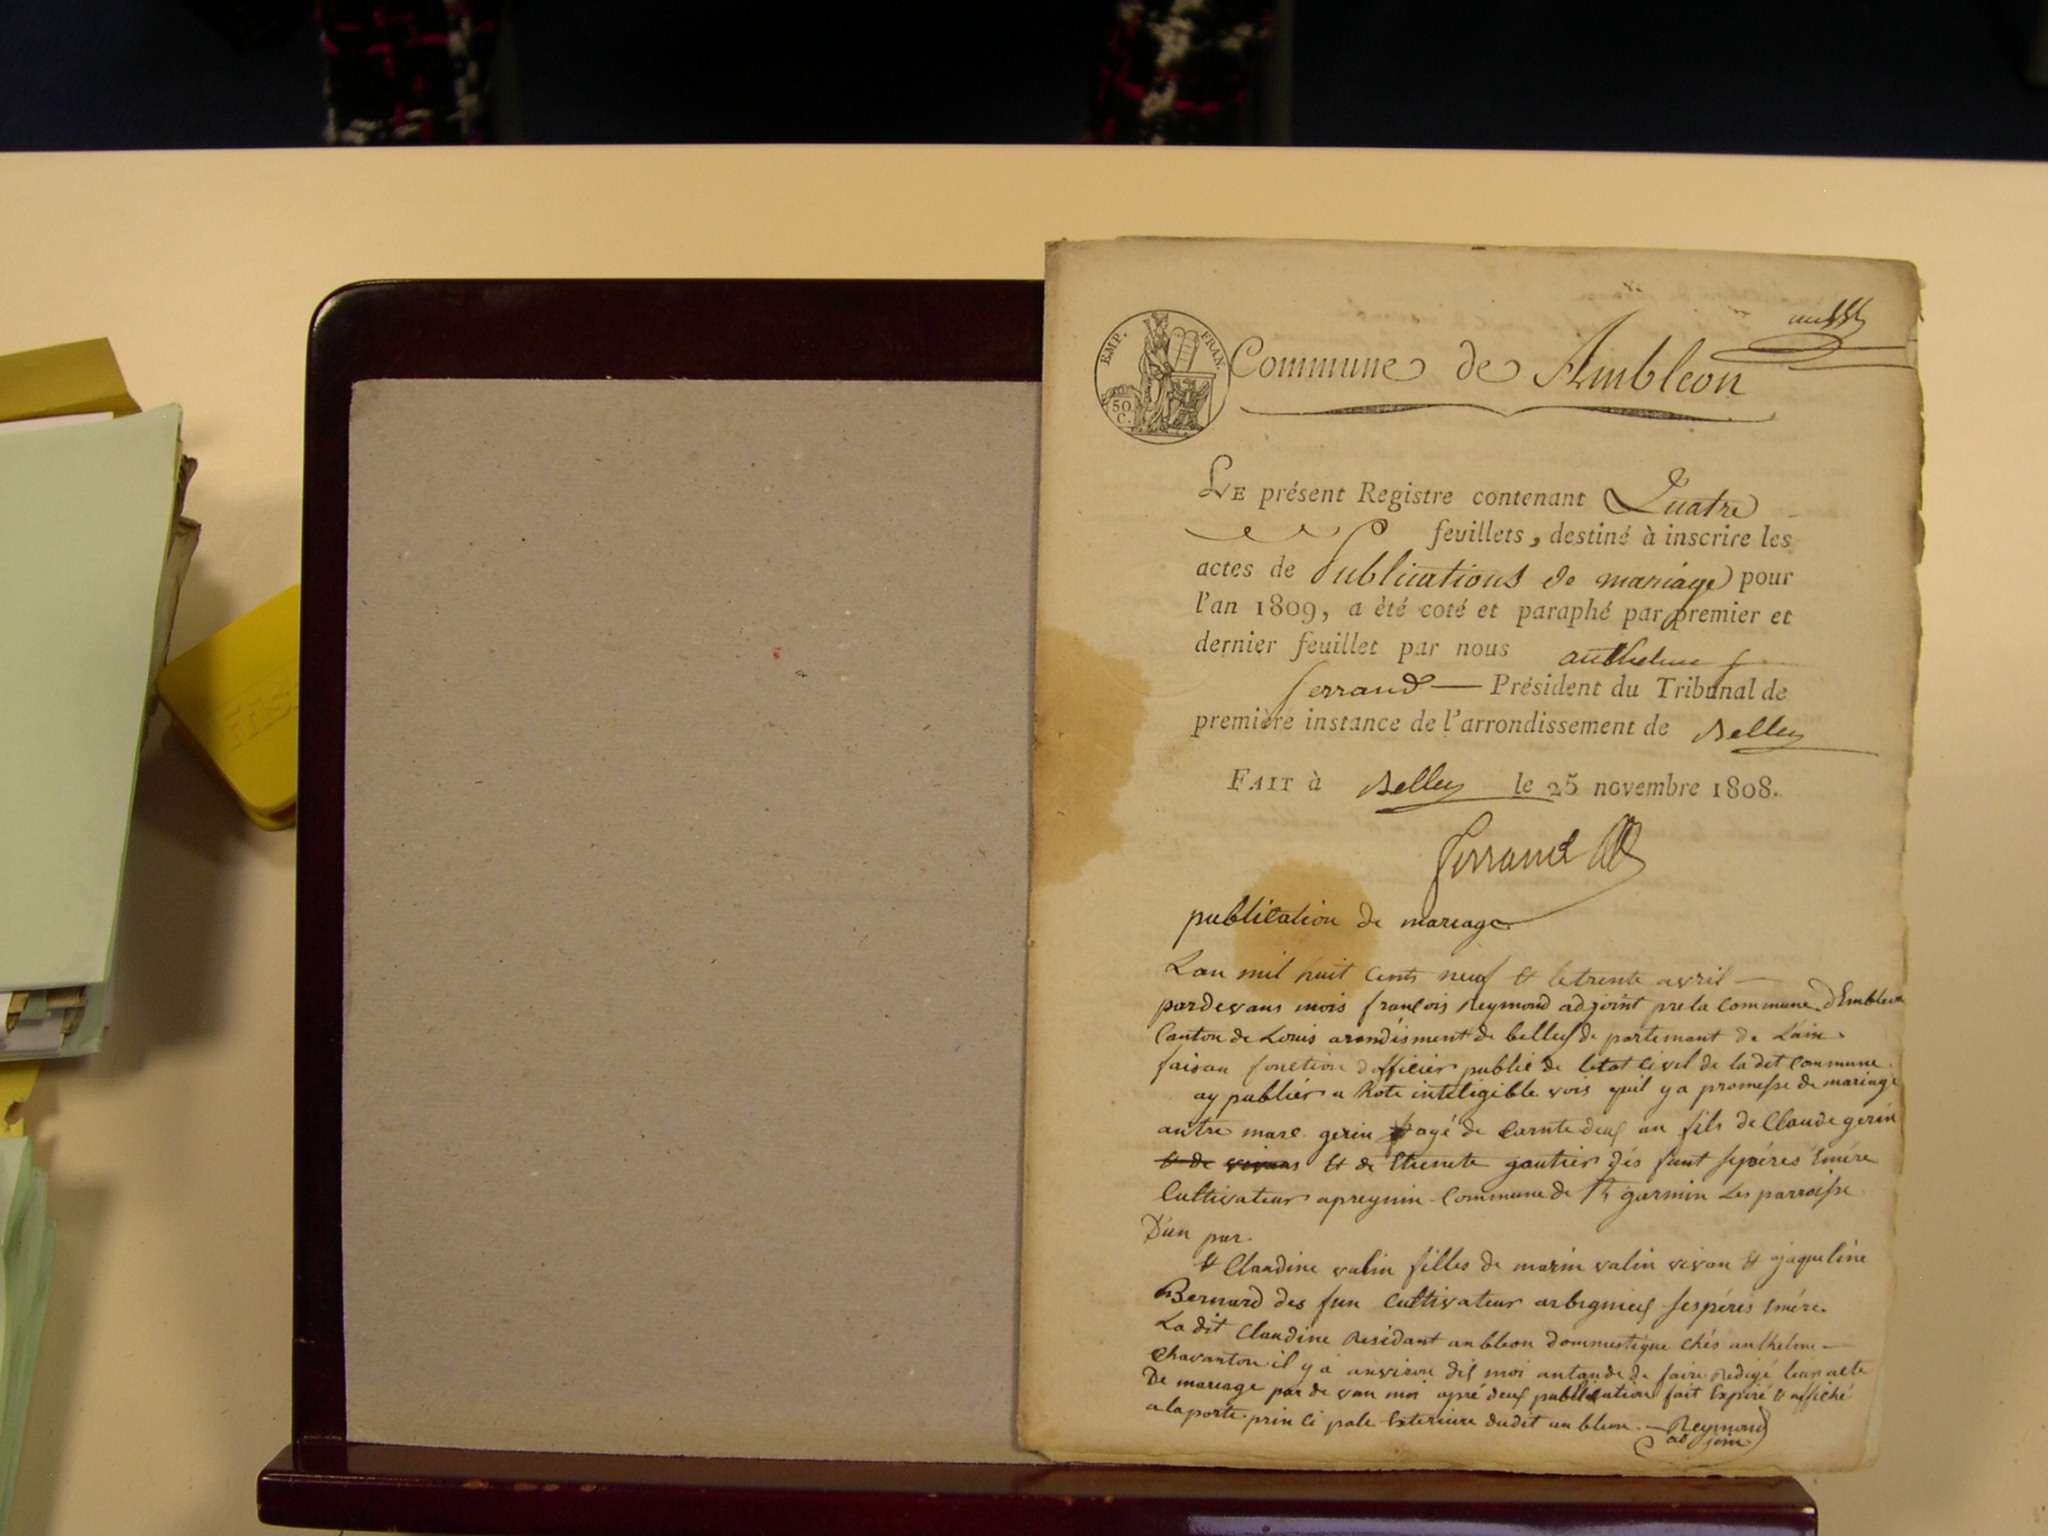 EMP. FRAN.
50 C.
Commune de Ambleon
LE présent Registre contenant Quatre
feuillets, destiné à inscrire les
actes de Publications de mariage pour
l'an 1809, a été coté et paraphé par premier et
dernier feuillet par nous anthelme
ferrand — Président du Tribunal de
première instance de l'arrondissement de Belley
FAIT à Belley le 25 novembre 1808.
ferrand
publication de mariage
Lan mil huit cents neuf & le trente avril —
pardevans mois françois Reymond adjoint pre la commune dEmbleon
Canton de Louis arondisment de belley de partemant de Lain
faisan fonction dofficier public de letat civil de la dit commune
ay publiér a hote inteligible vois quil y a promesse de mariage
antre marc gerin agé de carnte deux an fils de Claude gerin
& de vivans & de Etienete gautier dés funt sepéres & mére
Cultivateur apreymin Commune de St germin Les parroisse
D'un par.
& Claudine valin filles de marin valin vivan & jaqueline
Bernard des fun Cultivateur arbignieux sespéres & mére
La dit Claudine Residant anbleon dommestique chés anthelme —
Chavanton il y a anviron dix moi antande de faire Redigé leur acte
De mariage par de van moi apré deux publication fait Expiré & affiché
a la porte prin ci pale Exterieure dudit anbleon — Reymond
ad join